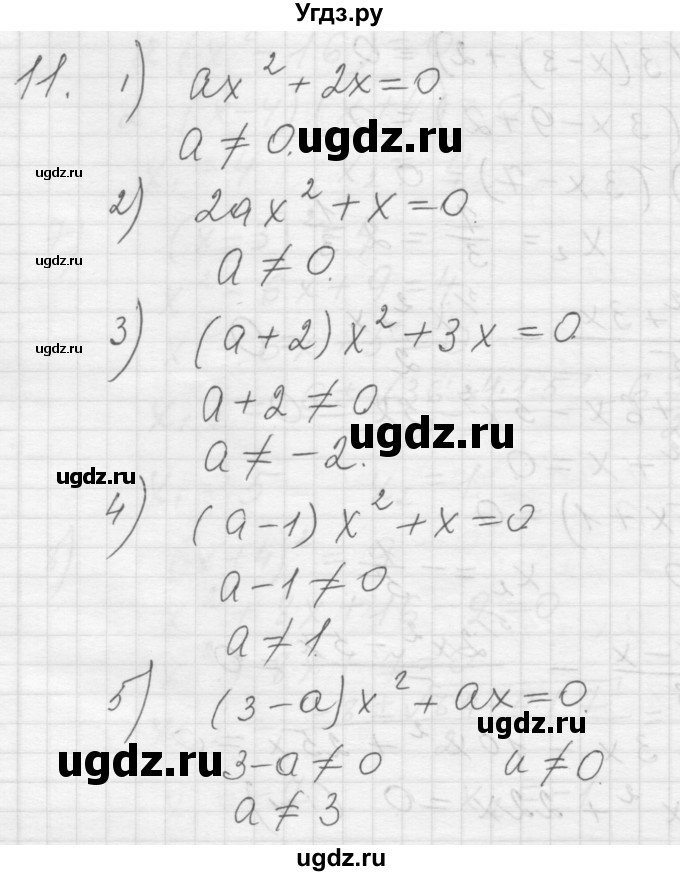 Угдз.ру
11. 1) ax² + 2x = 0.
a ≠ 0.
ugdz.ru
ugdz.ru
2) 2ax² + x = 0.
ugdz.ru
a ≠ 0.
3) (a + 2)x² + 3x = 0.
ugdz.ru
a + 2 ≠ 0
ugdz.ru
a ≠ -2.
ugdz.ru
4) (a - 1)x² + x = 0
a - 1 ≠ 0
a ≠ 1.
5) (3 - a)x² + ax = 0.
ugdz.ru
ugdz.ru
3 - a ≠ 0 a ≠ 0.
a ≠ 3
ugdz.ru